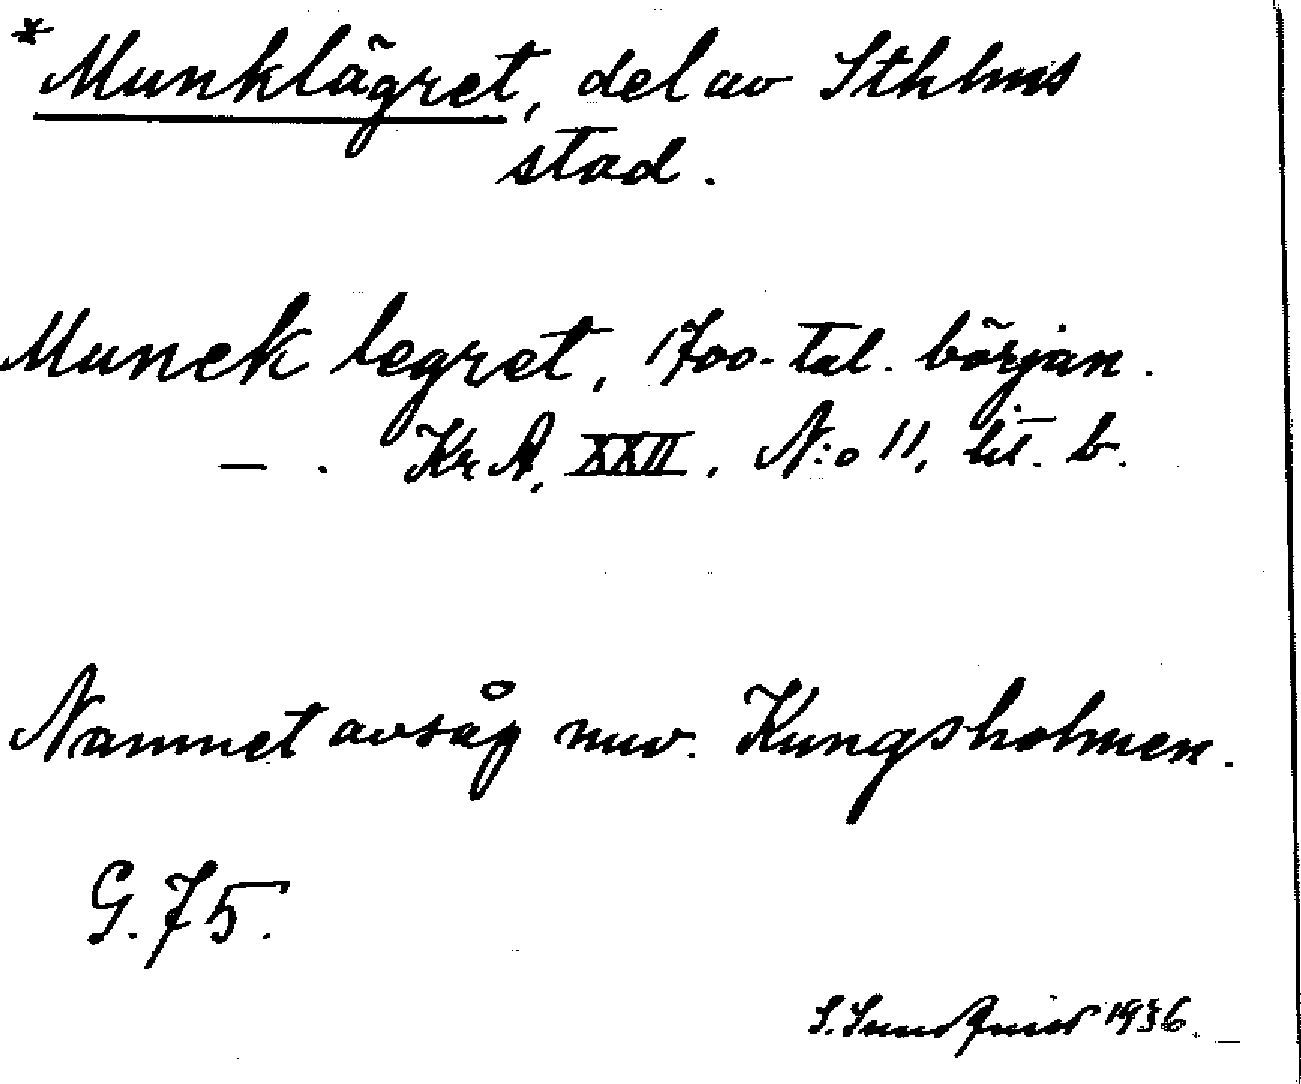 * Munklägret, del av Sthlms
stad.
Munck legret, 1700-tal. början.
— . Kr A, XXII, N:o 11, lit. b.
Namnet avsåg nuv. Kungsholmen.
G. 75.
S. Sundquist 1936.